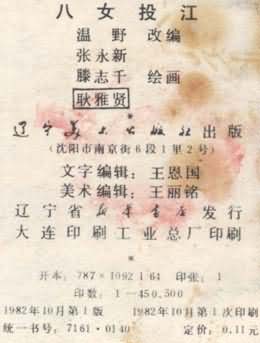 八女投江
温野 改编
张永新
滕志千 绘画
耿雅贤
辽宁美术出版社出版
(沈阳市南京街6段1里2号)
文字编辑：王恩国
美术编辑：王丽铭
辽宁省新华书店发行
大连印刷工业总厂印刷
开本：787×1092 1/64 印张：1
印数：1—450,500
1982年10月第1版 1982年10月第1次印刷
统一书号：7161·0140 定价：0.11元